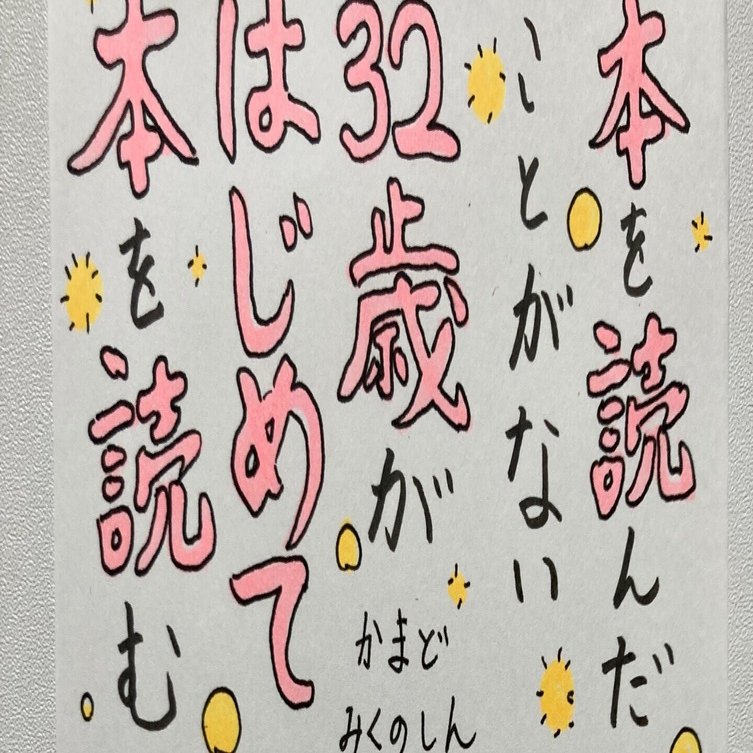 本を読んだ
ことがない
32歳が
はじめて
本を読む
かまど
みくのしん